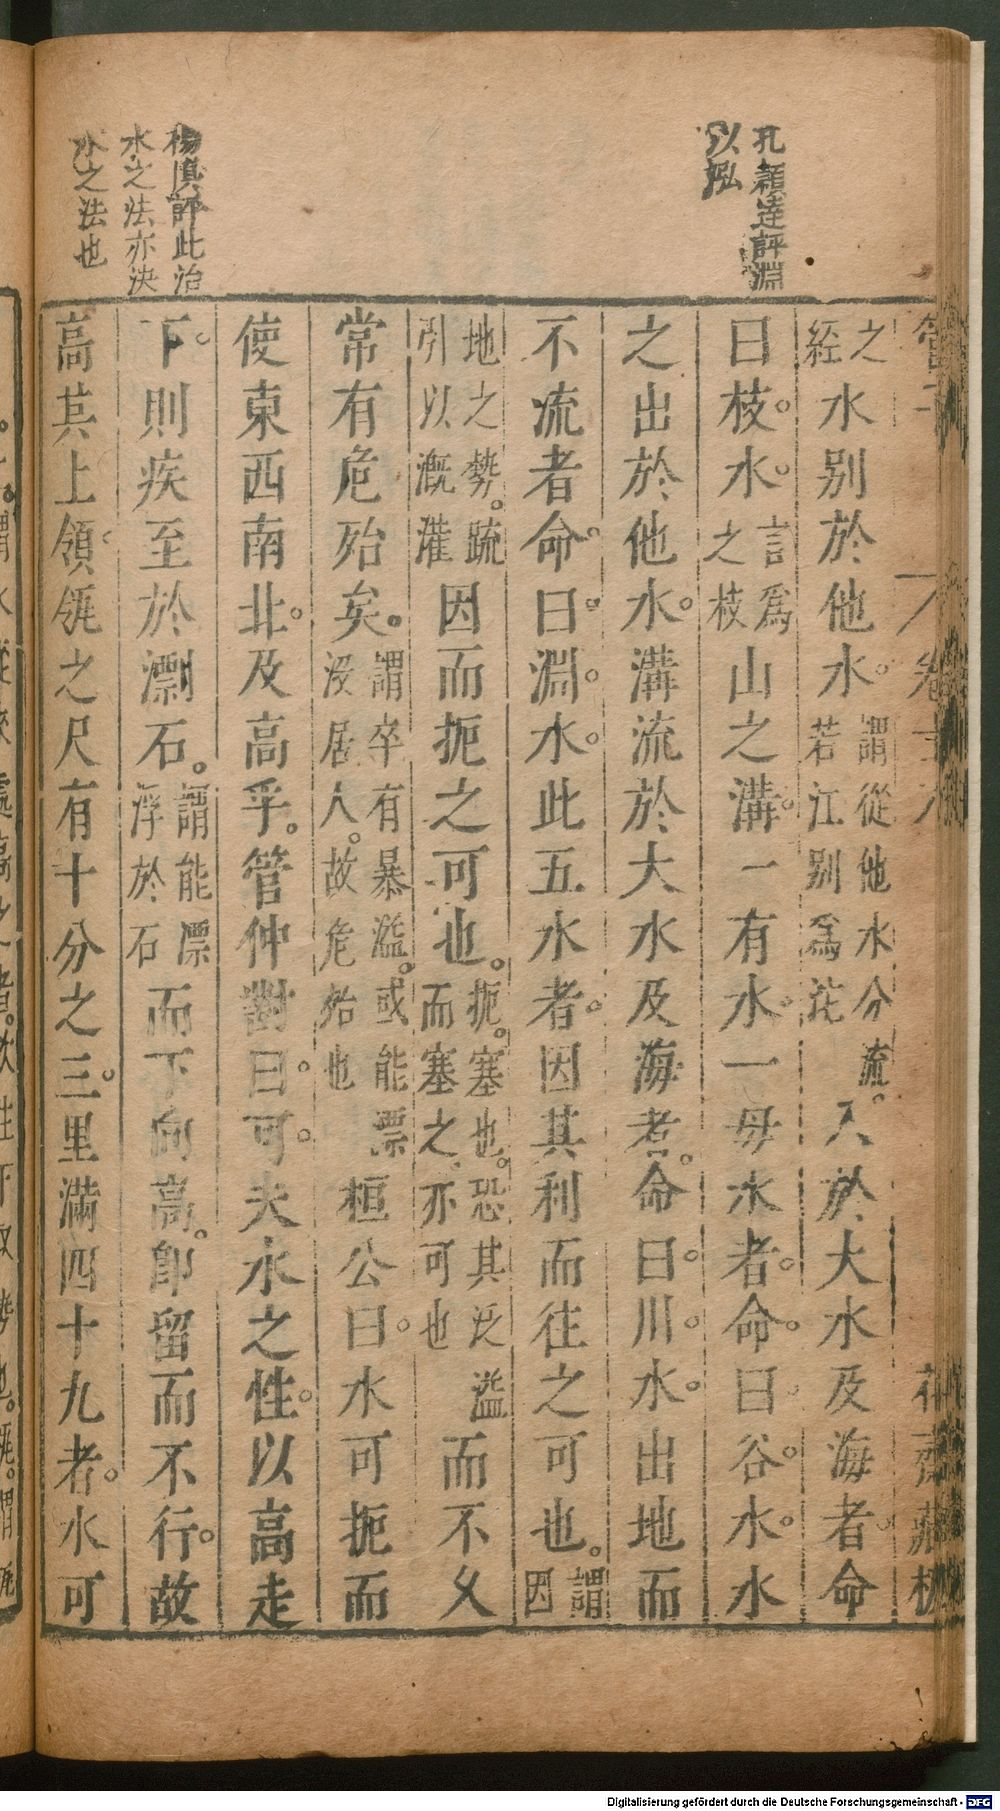 孔穎達評淵
以㲾
楊慎評此治
水之法亦決
水之法也
管子
卷十八
花齋藏板
之經水別於他水。謂從他水分流。若江別為沱入於大水及海者命
曰枝。水。言為之枝山之溝。一有水。一毋水者。命。曰谷。水。水
之出於他水。溝流於大水及海者。命曰。川。水。出地而
不流者命。曰。淵。水。此五水者。因其利而往之可也。謂因
地之勢。疏引以溉灌因而扼之可也。扼。塞也。恐其泛溢而塞之。亦可也而不久
常有危殆矣。謂卒有暴溢。或能漂浸居人。故危殆也桓公曰。水可扼而
使東西南北。及高乎。管仲對曰。可。夫水之性。以高走
下。則疾至於漂石。謂能漂浮於石而下向高。即留而不行。故
高其上領。瓴之尺有十分之三。里滿四十九者。水可
Digitalisierung gefördert durch die Deutsche Forschungsgemeinschaft - DFG